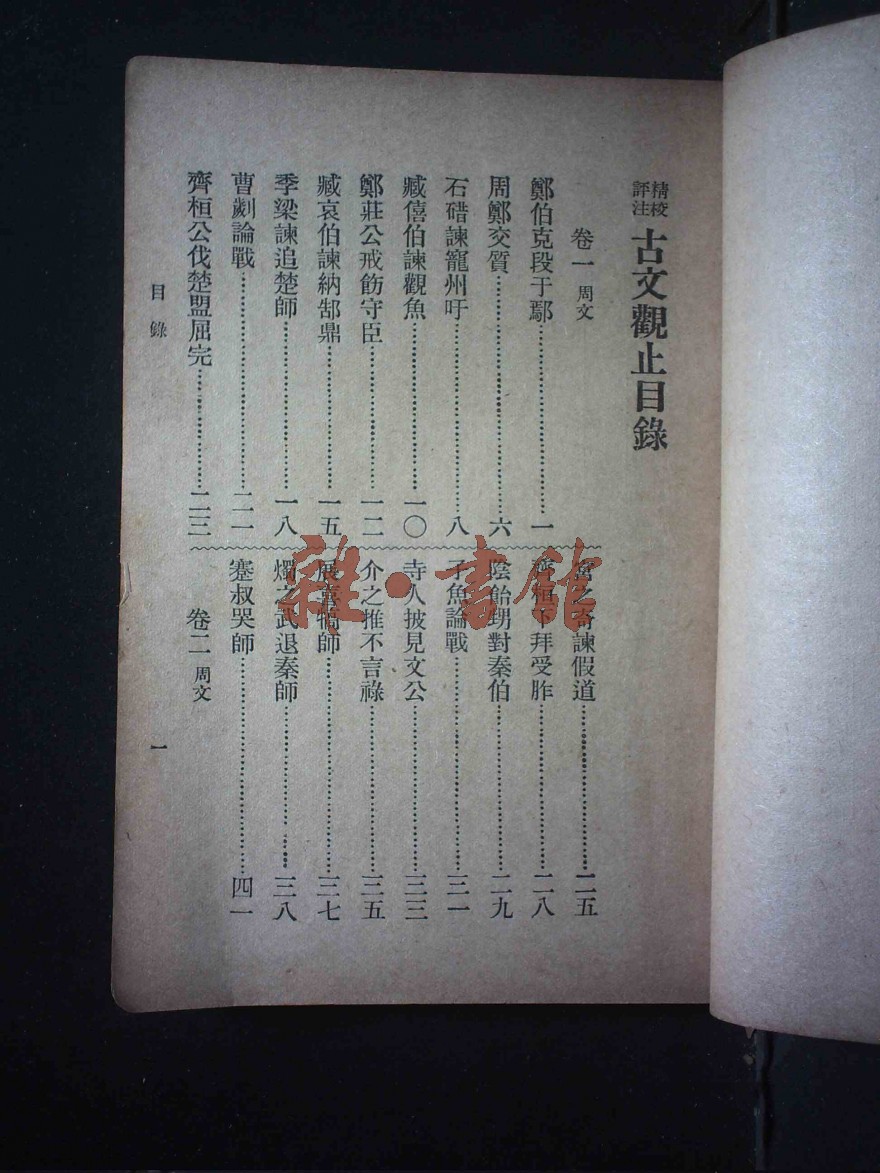 精校評注 古文觀止目錄
卷一 周文
鄭伯克段于鄢………一
周鄭交質………六
石碏諫寵州吁………八
臧僖伯諫觀魚………一〇
鄭莊公戒飭守臣………一二
臧哀伯諫納郜鼎………一五
季梁諫追楚師………一八
曹劌論戰………二一
齊桓公伐楚盟屈完………二三
宮之奇諫假道………二五
齊桓下拜受胙………二八
陰飴甥對秦伯………二九
子魚論戰………三一
寺人披見文公………三三
介之推不言祿………三五
展喜犒師………三七
燭之武退秦師………三八
蹇叔哭師………四一
卷二 周文
目錄
一
雜·書館